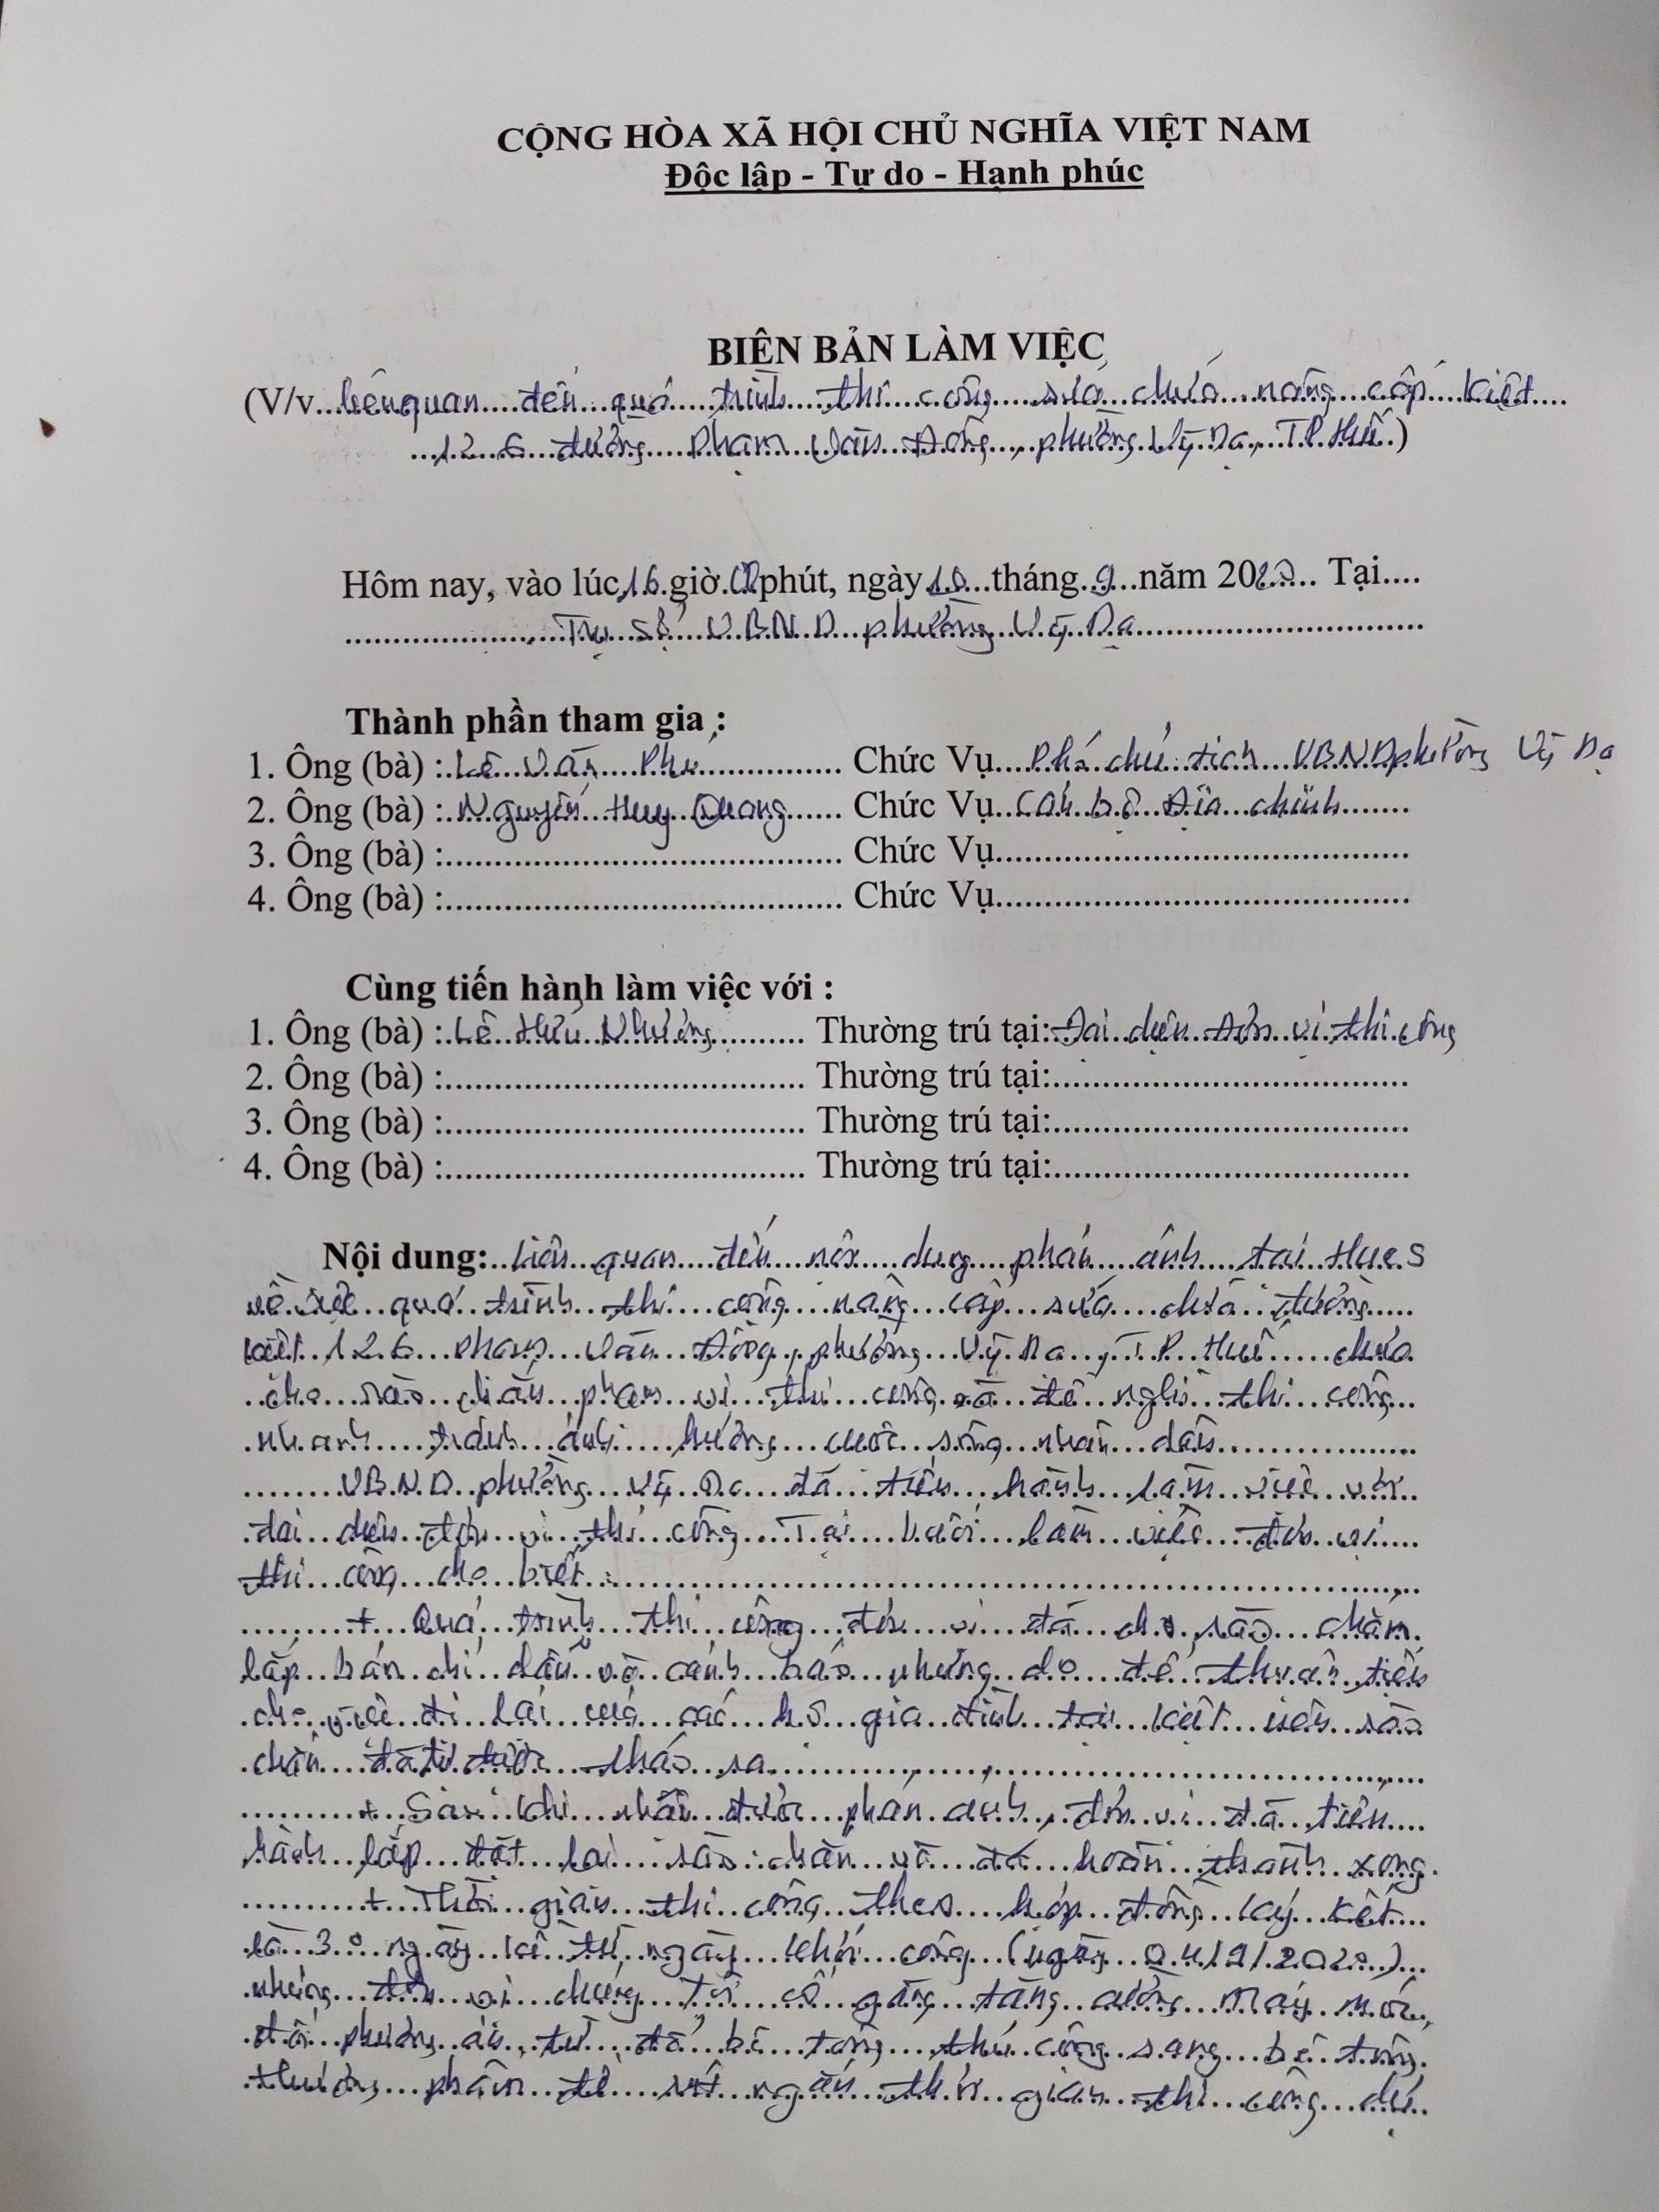 CỘNG HÒA XÃ HỘI CHỦ NGHĨA VIỆT NAM
Độc lập - Tự do - Hạnh phúc
BIÊN BẢN LÀM VIỆC
(V/v liên quan đến quá trình thi công sửa chữa nâng cấp kiệt
126 đường Phạm Văn Đồng, phường Vỹ Dạ, TP Huế)
Hôm nay, vào lúc 16 giờ 00 phút, ngày 10 tháng 9 năm 2020 Tại
Trụ sở UBND phường Vỹ Dạ
Thành phần tham gia :
1. Ông (bà) : Lê Văn Phú Chức Vụ Phó chủ tịch UBND phường Vỹ Dạ
2. Ông (bà) : Nguyễn Huy Quang Chức Vụ Cán bộ Địa chính
3. Ông (bà) : Chức Vụ
4. Ông (bà) : Chức Vụ
Cùng tiến hành làm việc với :
1. Ông (bà) : Lê Hữu Thường trú tại: Đại diện Đơn vị thi công
2. Ông (bà) : Thường trú tại:
3. Ông (bà) : Thường trú tại:
4. Ông (bà) : Thường trú tại:
Nội dung: Liên quan đến nội dung phản ánh tại HueS
về việc quá trình thi công nâng cấp sửa chữa đường
kiệt 126 Phạm Văn Đồng, phường Vỹ Dạ, TP Huế chưa
rào chắn phạm vi thi công và đề nghị thi công
nhanh tránh ảnh hưởng cuộc sống nhân dân
UBND phường Vỹ Dạ đã tiến hành làm việc với
đại diện đơn vị thi công. Tại buổi làm việc đơn vị
thi công cho biết :
+ Quá trình thi công đơn vị đã cho rào chắn,
lắp bản chỉ dẫn và cảnh báo nhưng do để thuận tiện
cho việc đi lại của các hộ gia đình tại kiệt nên rào
chắn đã tháo ra
+ Sau khi nhận được phản ánh, đơn vị đã tiến
hành lắp đặt lại rào chắn và đã hoàn thành xong.
+ Thời gian thi công theo hợp đồng ký kết
là 30 ngày kể từ ngày khởi công (ngày 04/9/2020)
nhưng đơn vị chúng tôi cố gắng tăng cường máy móc,
đổi phương án từ đổ bê tông thủ công sang bê tông
thương phẩm để rút ngắn thời gian thi công dự